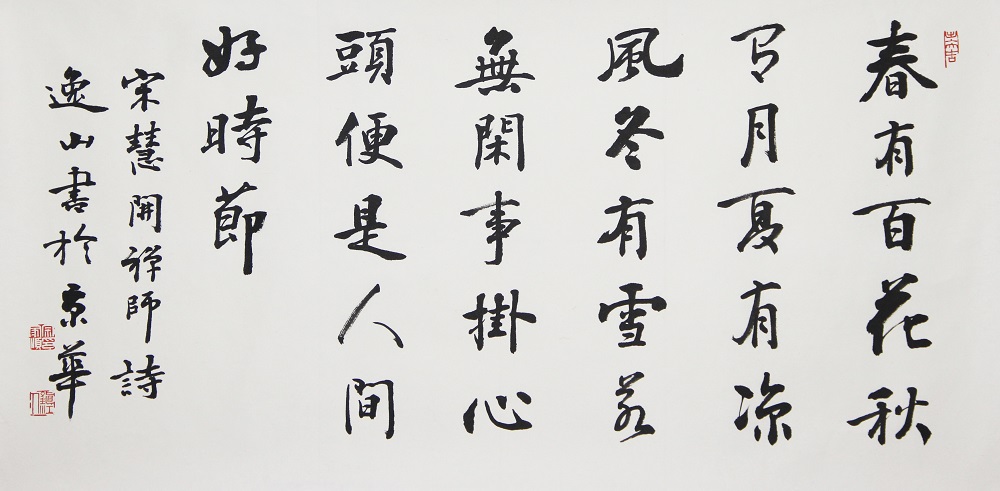 春有百花秋
有月夏有凉
風冬有雪若
無閑事掛心
頭便是人間
好時節
宋慧開禅師詩
逸山書於京華